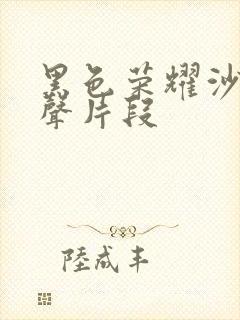 黑色荣耀沙
聲片段
陸成丰